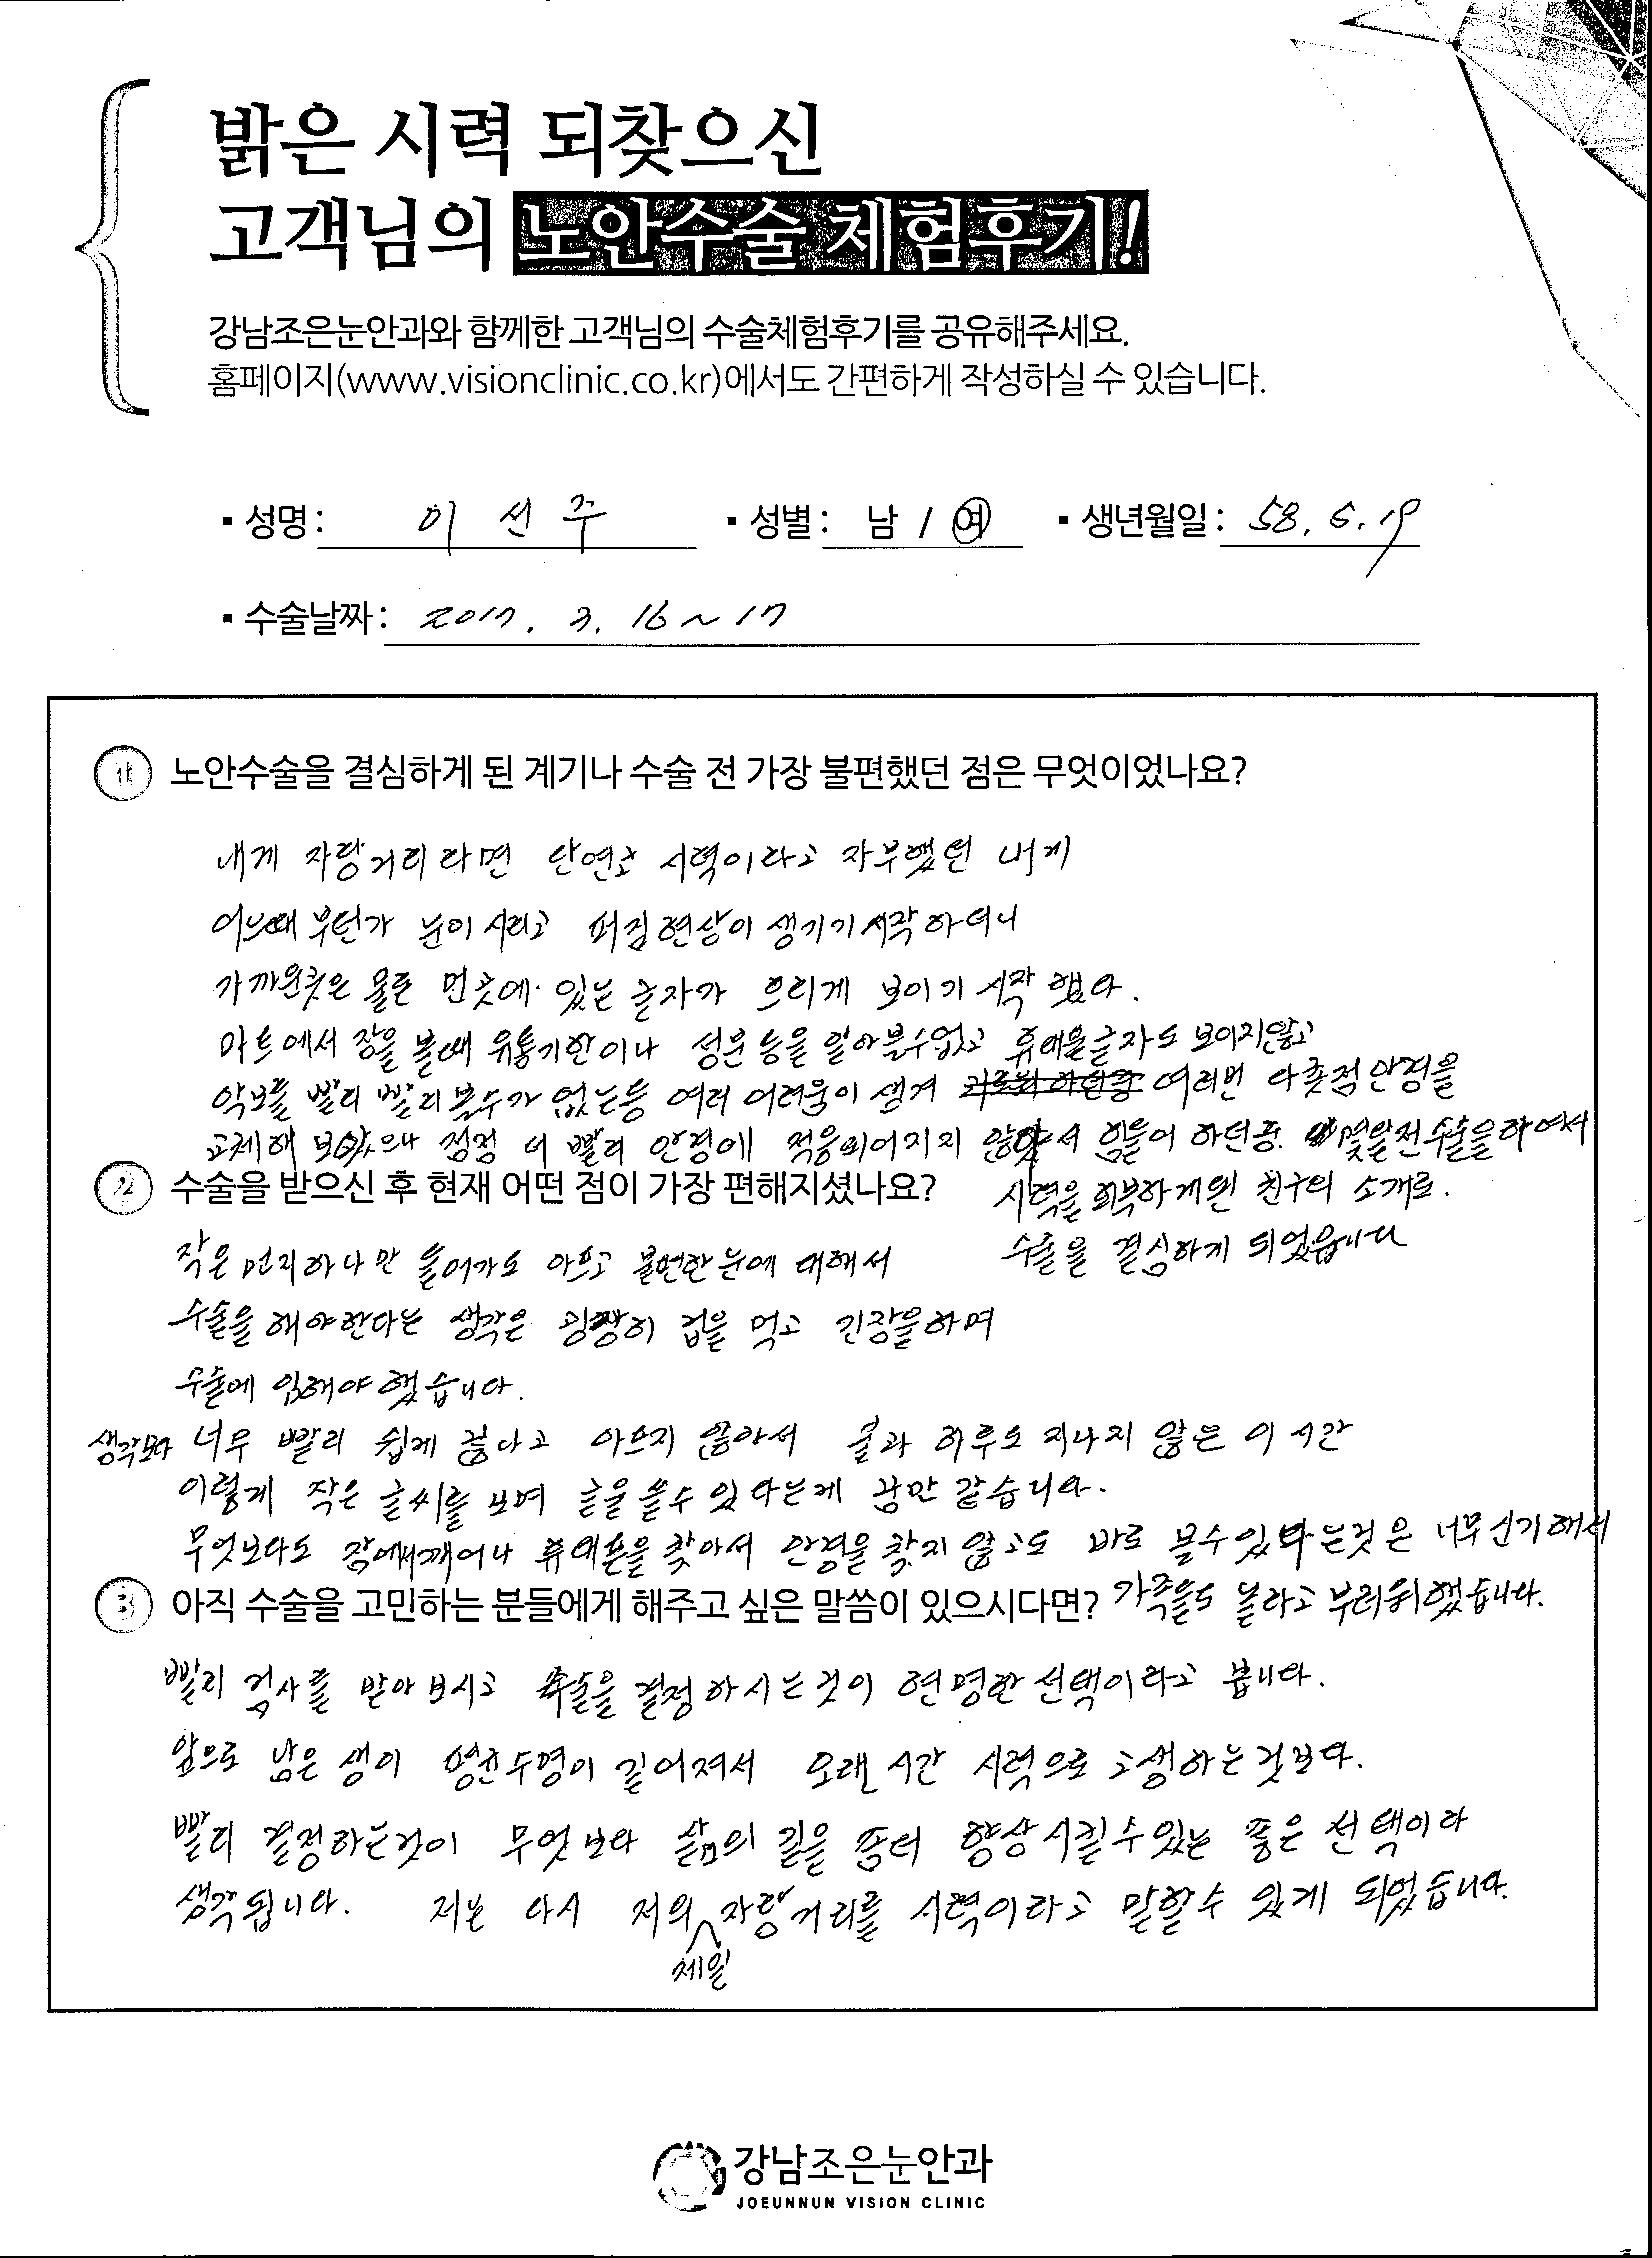 밝은 시력 되찾으신
고객님의 노안수술 체험후기!
강남조은눈안과와 함께한 고객님의 수술체험후기를 공유해주세요.
홈페이지(www.visionclinic.co.kr)에서도 간편하게 작성하실 수 있습니다.
▪ 성명: 이 선 주 ▪ 성별: 남 / 여 ▪ 생년월일: 58. 6. 19
▪ 수술날짜: 2017. 3. 16 ~ 17
1 노안수술을 결심하게 된 계기나 수술 전 가장 불편했던 점은 무엇이었나요?
내게 자랑거리라면 단연코 시력이라고 자부했던 내게
어느때 부턴가 눈이 시리고 퍼짐현상이 생기기 시작하더니
가까운곳은 물론 먼곳에 있는 글자가 흐리게 보이기 시작 했다.
마트에서 장을 볼때 유통기한이나 성분 등을 알아볼수없고 휴대폰글자도 보이지않고
악보를 빨리 빨리 볼수가 없는등 여러 어려움이 생겨 여러번 다촛점 안경을
교체해 보았으나 점점 더 빨리 안경에 적응되어지지 않아서 힘들어 하던중. 몇달전 수술을 하여서
시력을 회복하게된 친구의 소개로.
수술을 결심하게 되었읍니다
2 수술을 받으신 후 현재 어떤 점이 가장 편해지셨나요?
작은 먼지하나만 들어가도 아프고 불편한 눈에 대해서
수술을 해야한다는 생각은 굉장히 겁을 먹고 긴장을하며
수술에 임해야 했습니다.
생각보다 너무 빨리 쉽게 끝나고 아프지 않아서 불과 하루도 지나지 않은 이 시간
이렇게 작은 글씨를 보며 글을 쓸수 있다는게 꿈만 같습니다.
무엇보다도 잠에서깨어나 휴대폰을 찾아서 안경을 찾지 않고도 바로 볼수있다는것은 너무 신기해서
가족들도 놀라고 부러워했습니다.
3 아직 수술을 고민하는 분들에게 해주고 싶은 말씀이 있으시다면?
빨리 검사를 받아보시고 수술을 결정하시는것이 현명한 선택이라고 봅니다.
앞으로 남은 생이 평균수명이 길어져서 오랜 시간 시력으로 고생하는것보다.
빨리 결정하는것이 무엇보다 삶의 길을 좀더 향상시킬수있는 좋은 선택이라
생각됩니다. 저는 다시 저의 제일 자랑거리를 시력이라고 말할수 있게 되었습니다.
강남조은눈안과
JOEUNNUN VISION CLINIC